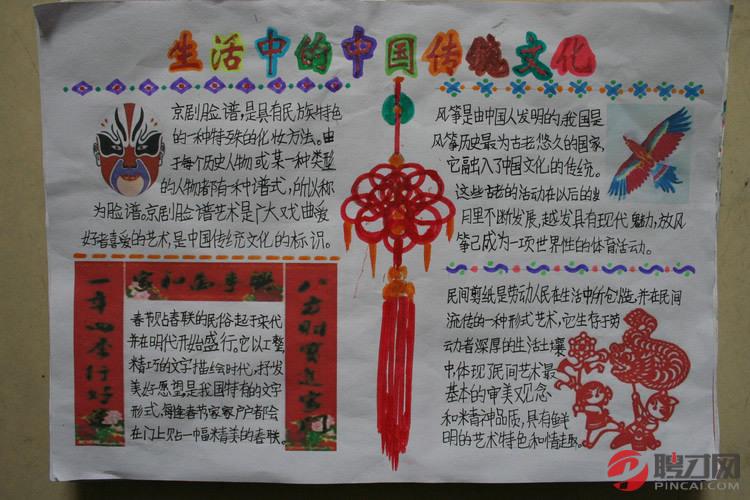 生活中的中国传统文化
京剧脸谱,是具有民族特色
的一种特殊的化妆方法。由
于每个历史人物或某一种类型
的人物都有一种谱式,所以称
为脸谱。京剧脸谱艺术是广大戏曲爱
好者喜爱的艺术,是中国传统文化的标识。
风筝是由中国人发明的,我国是
风筝历史最为古老悠久的国家,
它融入了中国文化的传统。
这些古老的活动在以后的岁
月里不断发展,越发具有现代魅力,放风
筝已成为一项世界性的体育活动。
家和万事兴
一年四季行好运
八方财宝进家门
春节贴春联的民俗起于宋代
并在明代开始盛行。它以工整,
精巧的文字描绘时代,抒发
美好愿望,是我国特有的文字
形式,每逢春节家家户户都会
在门上贴一幅精美的春联。
民间剪纸是劳动人民在生活中所创造,并在民间
流传的一种形式艺术,它生存于劳
动者深厚的生活土壤
中,体现了民间艺术最
基本的审美观念
和精神品质,具有鲜
明的艺术特色和情趣。
聘才网
PINCAI.COM